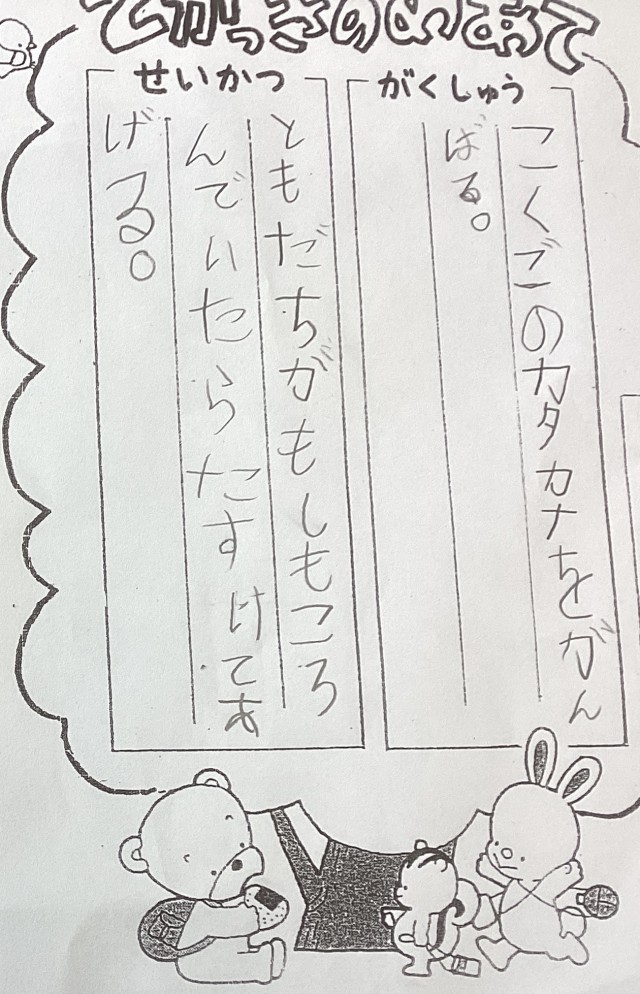 てがっきのめあて
がくしゅう
こくごのカタカナをがん
ばる。
せいかつ
ともだちがもしもころ
んでいたらたすけてあ
げる。